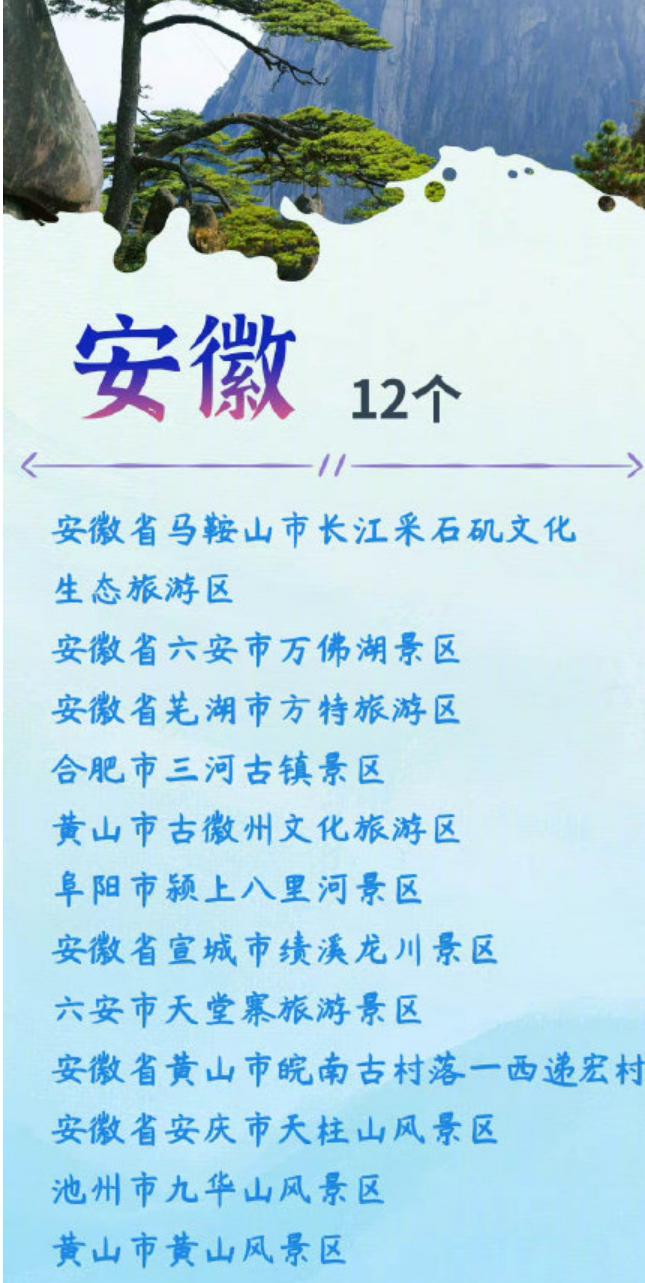 安徽
12个
安徽省马鞍山市长江采石矶文化
生态旅游区
安徽省六安市万佛湖景区
安徽省芜湖市方特旅游区
合肥市三河古镇景区
黄山市古徽州文化旅游区
阜阳市颍上八里河景区
安徽省宣城市绩溪龙川景区
六安市天堂寨旅游景区
安徽省黄山市皖南古村落一西递宏村
安徽省安庆市天柱山风景区
池州市九华山风景区
黄山市黄山风景区